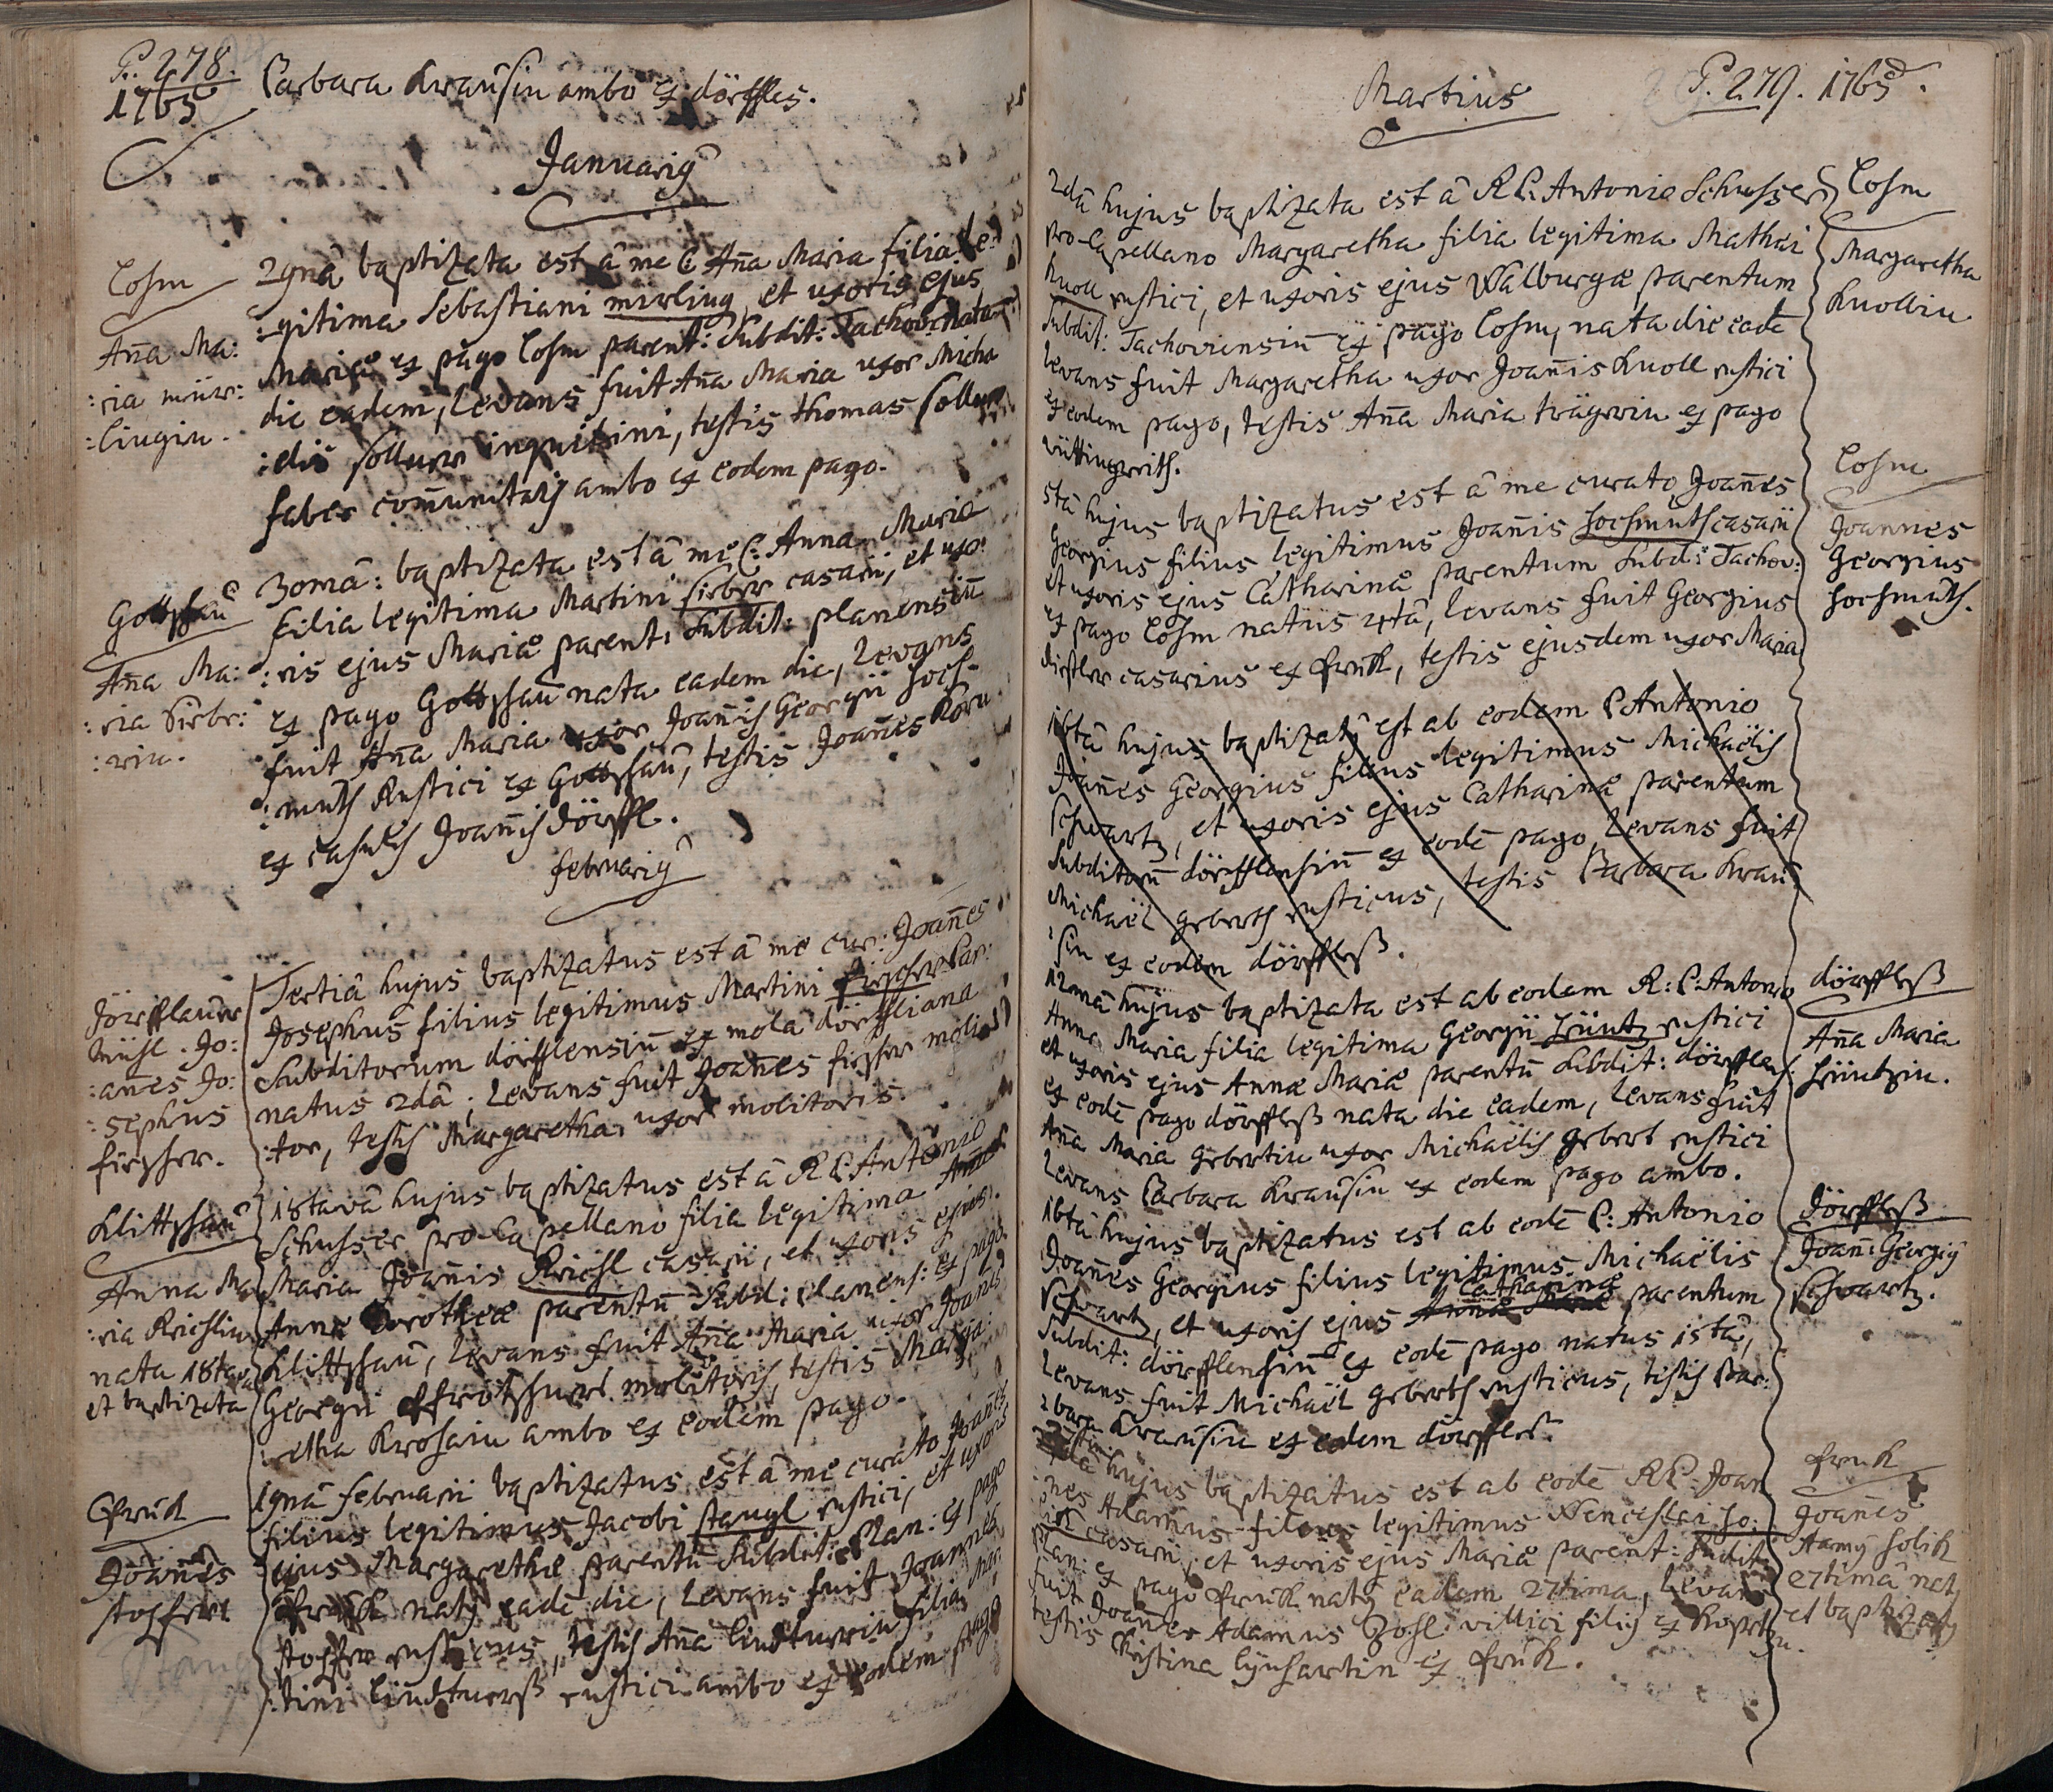 P. 278.
1765
Barbara Krausin ambo ex dörffles.
Januarij
Losm
Aña Ma:
:ria mür:
:lingin.
29nâ baptizata est â me C. Aña Maria filia le:
:gitima Sebastiani mirling, et uxoris ejus
Mariæ ex pago Losm parent: Subdit: Tachov: nata
die eadem, levans fuit Aña Maria uxor Micha
:elis sollner inquilini, testis Thomas sollner
faber com̃unitatis ambo ex eodem pago.
Gottschau
Aña Ma:
:ria Sirbr:
:rin.
30mâ: baptizata est â me C. Anna Maria
filia legitima Martini sirber casarii, et uxo:
:ris ejus Mariæ parent: Subdit: planensiũ
ex pago Gottschau nata eadem die, levans
fuit Aña Maria uxor Joañis Georgii Hoch-
:muth Rustici ex Gottschau, testis Joañes Korn
ex casulis Joañis dörffl.
februarij
Dörfflauer
Mühl. Jo:
:añes Jo:
:sephus
fischer.
Tertiâ hujus baptizatus est â me cur: Joañes
Josephus filius legitimus Martini fischer Par:
Subditorum dörfflensiũ ex mola dörffliana
natus 2dâ; Levans fuit Joañes fischer moli
:tor, testis Margaretha uxor molitoris.
Klittschau
Anna Ma
:ria Richlin
nata 18tava
et baptizata
18tavâ hujus baptizatus est â R.P. Antonio
Schusser pro-Capellano filia legitima Anna
Maria Joañis Richl casarii, et uxoris ejus
Annæ Dorotheæ parentũ Subd: planens: ex pago
Klittschau, levans fuit Aña Maria uxor Joañis
Georgii molitoris, testis Marga:
:retha ambo ex eodem pago.
Joañes
19nâ februarii baptizatus est â me curato Joañes
filius legitimus Jacobi stangl rustici, et uxoris
ejus Margarethæ parentũ Subdit: Plan: ex pago
natus eadẽ die, levans fuit Joannes
rusticus, testis Aña filia Mar
:tini rustici ambo ex eodem pago
Martius
P. 279. 1765.
2dâ hujus baptizata est â R.P. Antonio Schusser
pro-Capellano Margaretha filia legitima Mathæi
Knoll rustici, et uxoris ejus Walburgæ parentum
Subdit: Tachoviensiũ ex pago Losm, nata die eadẽ
levans fuit Margaretha uxor Joañis Knoll rustici
ex eodem pago, testis Aña Maria trägerin ex pago
Losm
Margaretha
Knollin
5tâ hujus baptizatus est â me curato Joañes
Georgius filius legitimus Joañis Hochmuth casarii
et uxoris ejus Catharinæ parentum Subd: Tachov:
ex pago Losm natus 4tâ, levans fuit Georgius
distler casarius ex Honick, testis ejusdem uxor Maria
Losm
Joannes
Georgius
Hochmuth.
16tâ hujus baptizatus est ab eodem P. Antonio
Joañes Georgius filius legitimus Michaëlis
Schwartz, et uxoris ejus Catharinæ parentum
Subditorũ dörfflensiũ ex eodẽ pago, levans fuit
Michaël geberth rusticus, testis Barbara Krau
:sin ex eodem dörffleß.
12mâ hujus baptizata est ab eodem R: P. Antonio
Anna Maria filia legitima Georgii rustici
et uxoris ejus Annæ Mariæ parentũ Subdit: dörfflens:
ex eodẽ pago dörffleß nata die eadem, levans fuit
Aña Maria Gebertin uxor Michaëlis Gebert rustici
levans Barbara Krausin ex eodem pago ambo.
dörffleß
Aña Maria
16tâ hujus baptizatus est ab eodẽ P: Antonio
Joañes Georgius filius legitimus Michaëlis
Catharinæ
Schwartz, et uxoris ejus Annæ Mariæ parentum
Subdit: dörfflensiũ ex eodẽ pago natus 15tâ,
levans fuit Michaël geberth rusticus, testis Bar:
:bara Krausin ex eodem dörffleß.
Dörffleß
Joañ: Georgij
Schwartz.
hujus baptizatus est ab eodẽ R.P. Joan
:nes Adamus filius legitimus Wenceslai Ho:
:lik casarii, et uxoris ejus Mariæ parent: Subdit:
Plan: ex pago natus eadem 27tima, levans
fuit Joañes Adamus villici filius ex
testis Christina ex
Joañes
Adamus Holik
27timâ natus
et baptizatus